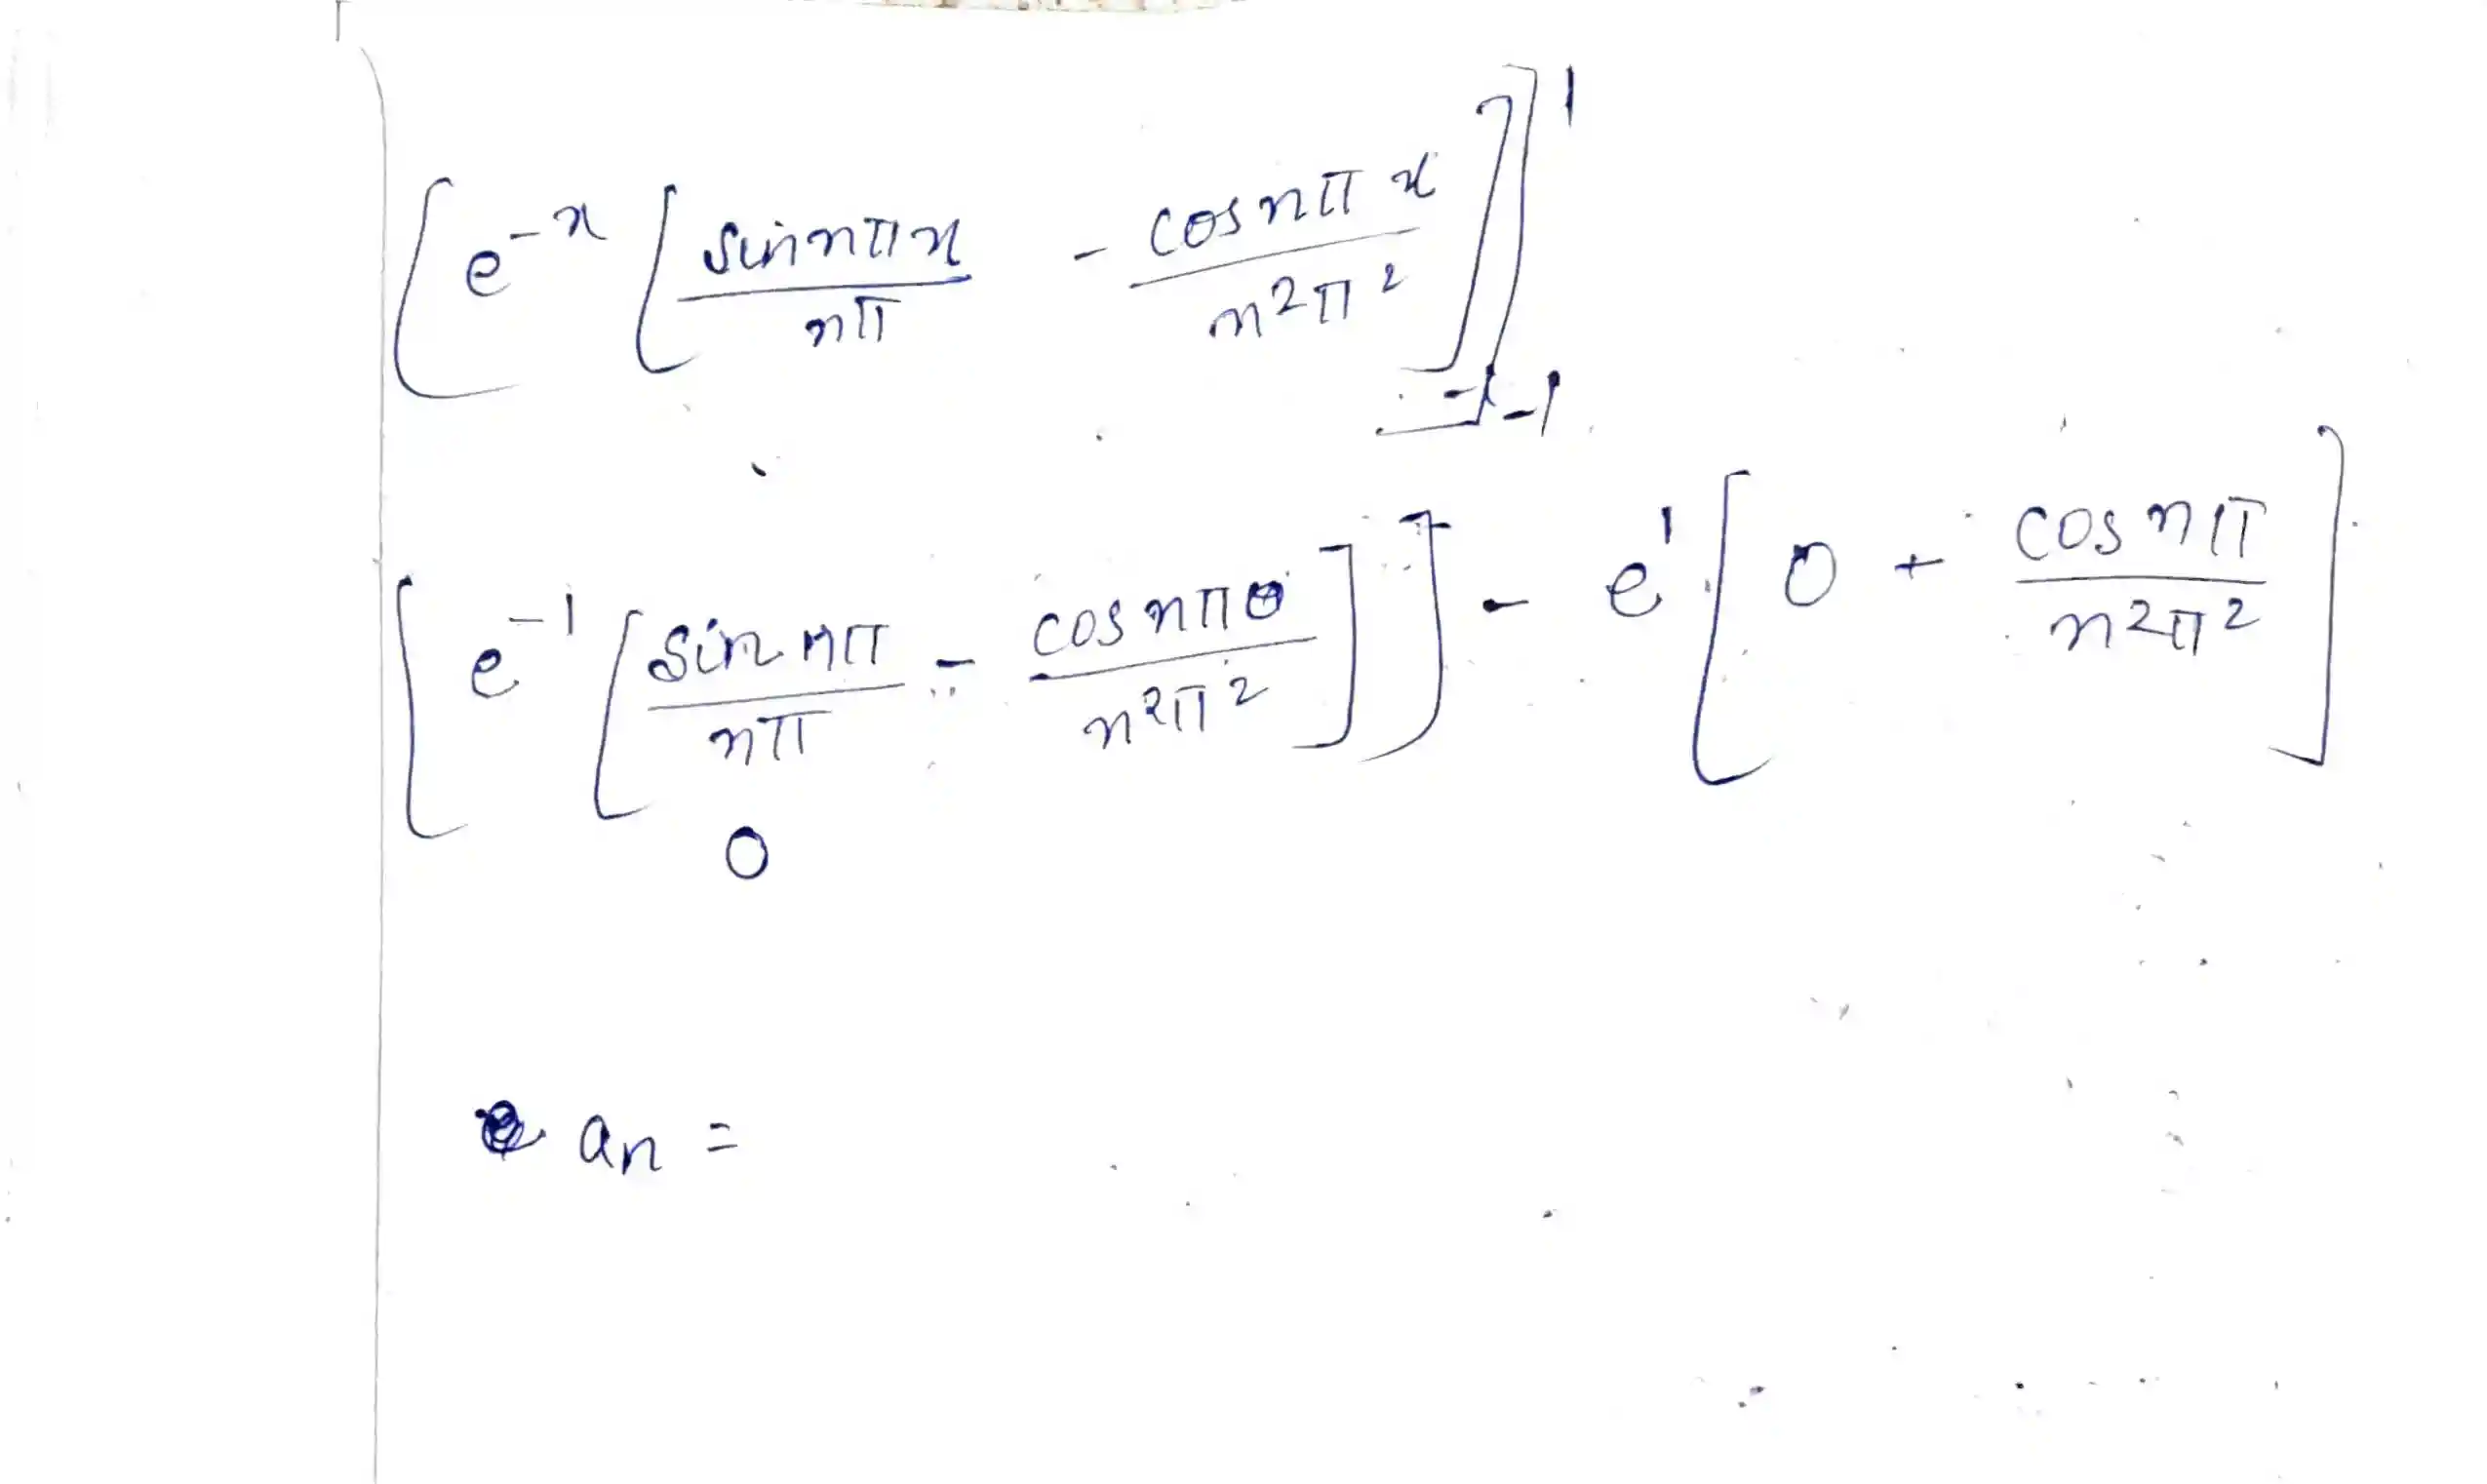 [e^{-x} [\frac{\sin nπx}{nπ} - \frac{\cos nπx}{n^2π^2}]]_{-1}^{1}
[e^{-1} [\frac{\sin nπ}{nπ} - \frac{\cos nπ}{n^2π^2}]] - e^1 [0 + \frac{\cos nπ}{n^2π^2}]
0
a_n =